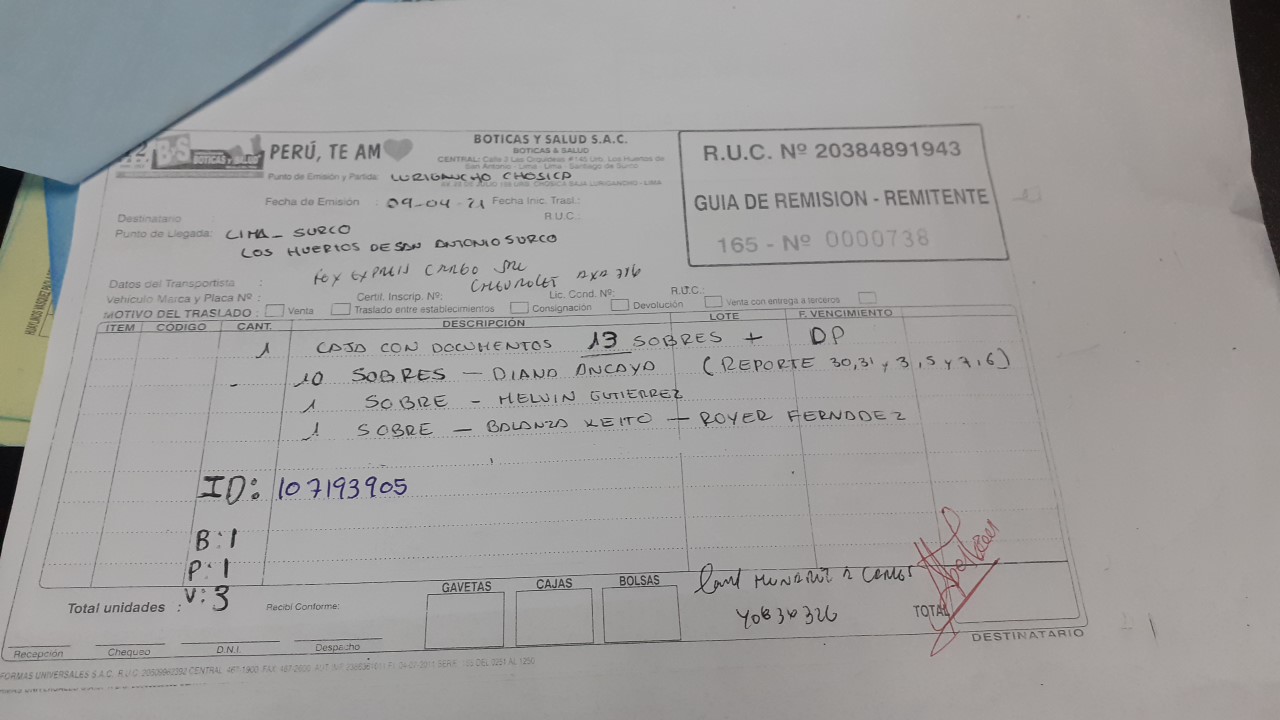 B·S BOTICAS Y SALUD PERÚ, TE AM
BOTICAS Y SALUD S.A.C.
BOTICAS & SALUD
CENTRAL: Calle 3 Las Orquídeas # 145 Urb. Los Huertos de
San Antonio - Lima - Lima - Santiago de Surco
Punto de Emisión y Partida: LURIGANCHO CHOSICA
R.U.C. Nº 20384891943
GUIA DE REMISION - REMITENTE
165 - Nº 0000738
Fecha de Emisión : 09-04-21 Fecha Inic. Trasl.:
Destinatario : R.U.C.:
Punto de Llegada: LIMA - SURCO
LOS HUERTOS DE SAN ANTONIO SURCO
Datos del Transportista : FOX EXPRESS CARGO SRL
CHEVROLET AXA 716
Vehículo Marca y Placa Nº : Certif. Inscrip. Nº: Lic. Cond. Nº: R.U.C.:
MOTIVO DEL TRASLADO : Venta Traslado entre establecimientos Consignación Devolución Venta con entrega a terceros
ITEM CÓDIGO CANT. DESCRIPCIÓN LOTE F. VENCIMIENTO
1 CAJA CON DOCUMENTOS 13 SOBRES + DP
- 10 SOBRES - DIANA ANCAYA (REPORTE 30,31 y 3,5 y 7,6)
1 SOBRE - MELVIN GUTIERREZ
1 SOBRE - BALANZA KEITO - ROYER FERNADEZ
ID: 107193905
B:1
P:1
V:3
Total unidades : Recibí Conforme:
GAVETAS CAJAS BOLSAS
TOTAL
Recepción Chequeo D.N.I. Despacho
DESTINATARIO